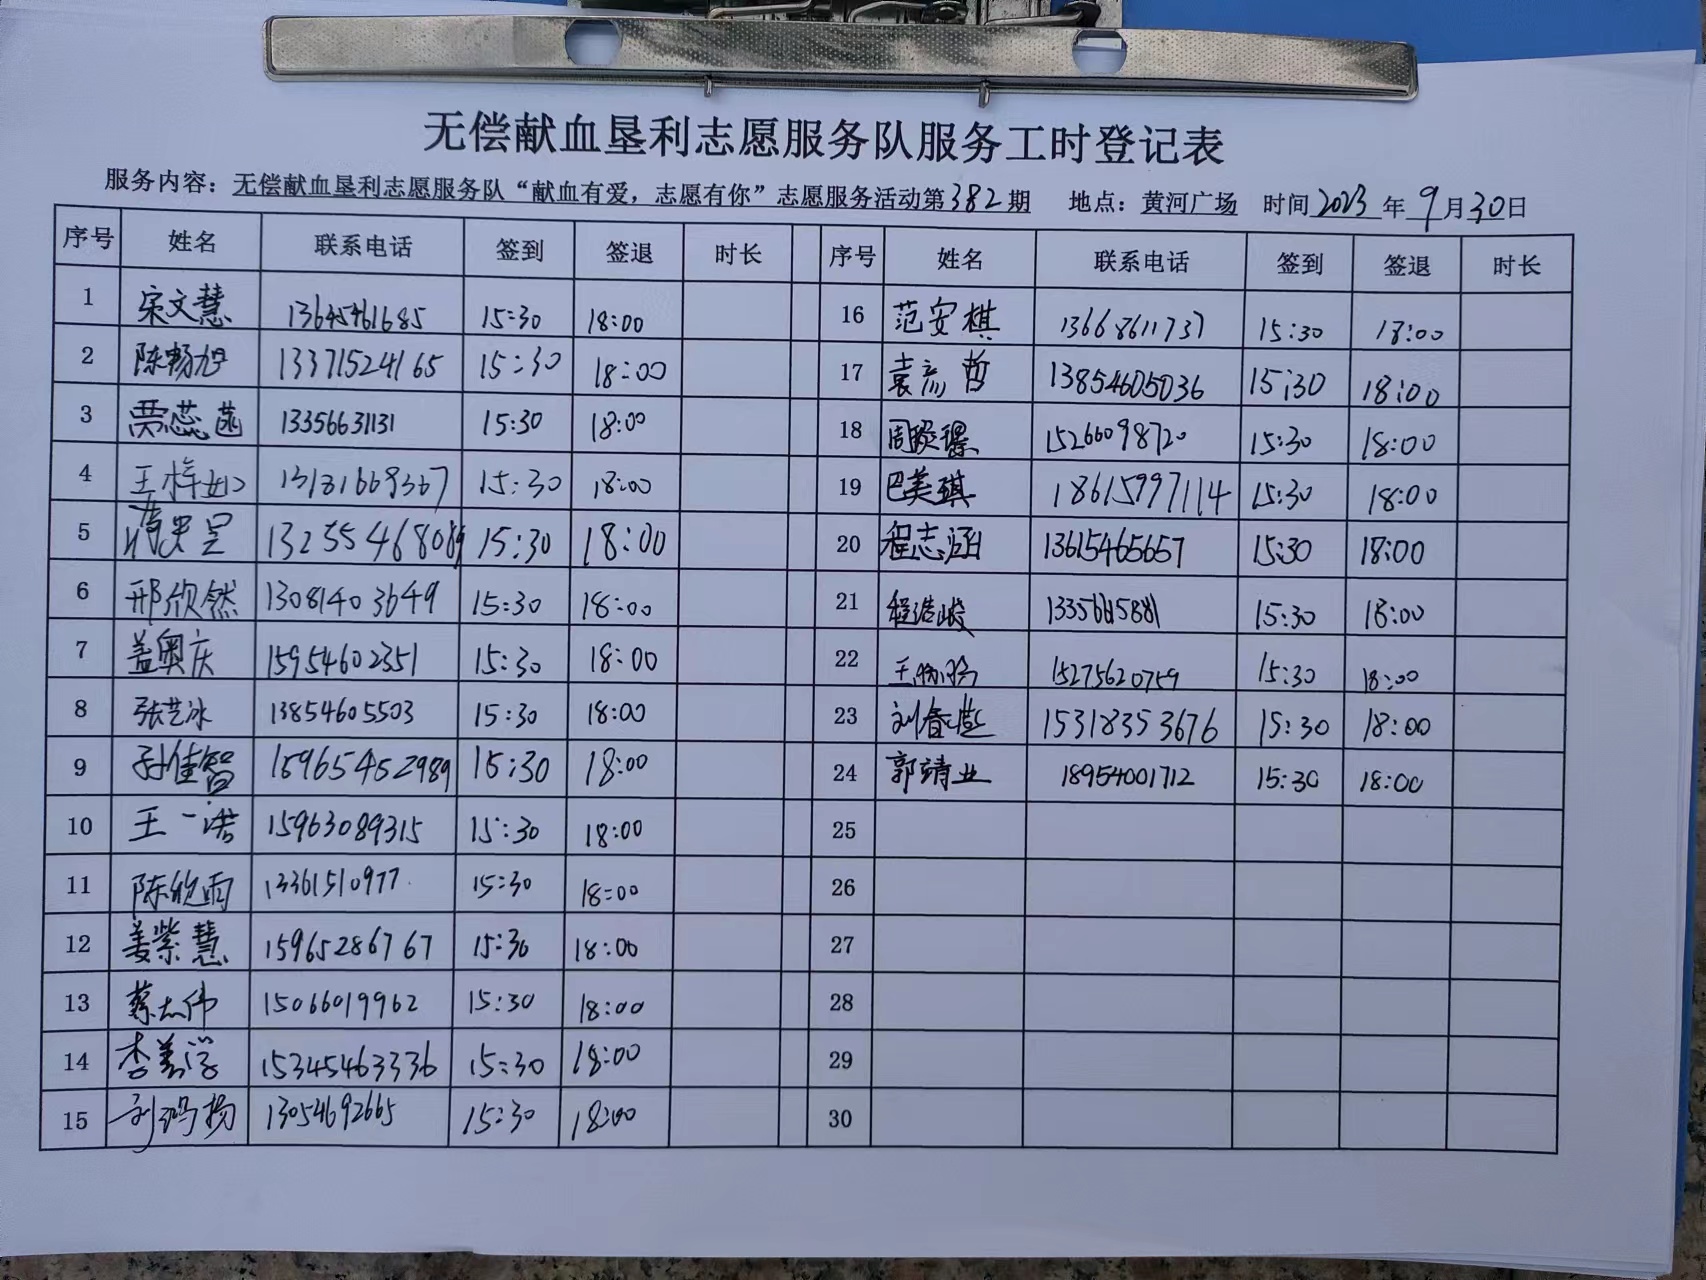 无偿献血垦利志愿服务队服务工时登记表
服务内容：无偿献血垦利志愿服务队“献血有爱，志愿有你”志愿服务活动第382期 地点：黄河广场 时间2023年9月30日
序号 姓名 联系电话 签到 签退 时长 序号 姓名 联系电话 签到 签退 时长
1 宋文慧 13645461685 15:30 18:00 16 范安棋 13668611737 15:30 18:00
2 陈畅旭 13371524165 15:30 18:00 17 袁 哲 13854605036 15:30 18:00
3 贾蕊菡 13356631131 15:30 18:00 18 周 15266098720 15:30 18:00
4 王梓如 15:30 18:00 19 巴美琪 18615997114 15:30 18:00
5 15:30 18:00 20 程志涵 13615465657 15:30 18:00
6 邢欣然 13081403649 15:30 18:00 21 程浩峻 15:30 18:00
7 盖奥庆 15954602351 15:30 18:00 22 王 15275620759 15:30 18:00
8 张艺冰 13854605503 15:30 18:00 23 刘春 15318353676 15:30 18:00
9 孙佳智 15965452989 15:30 18:00 24 郭靖业 18954001712 15:30 18:00
10 王一诺 15963089315 15:30 18:00 25
11 陈欣雨 13361510977 15:30 18:00 26
12 姜紫慧 15965286767 15:30 18:00 27
13 蔡志伟 15066019962 15:30 18:00 28
14 李美学 15345463336 15:30 18:00 29
15 刘鸿杨 13054692665 15:30 18:00 30